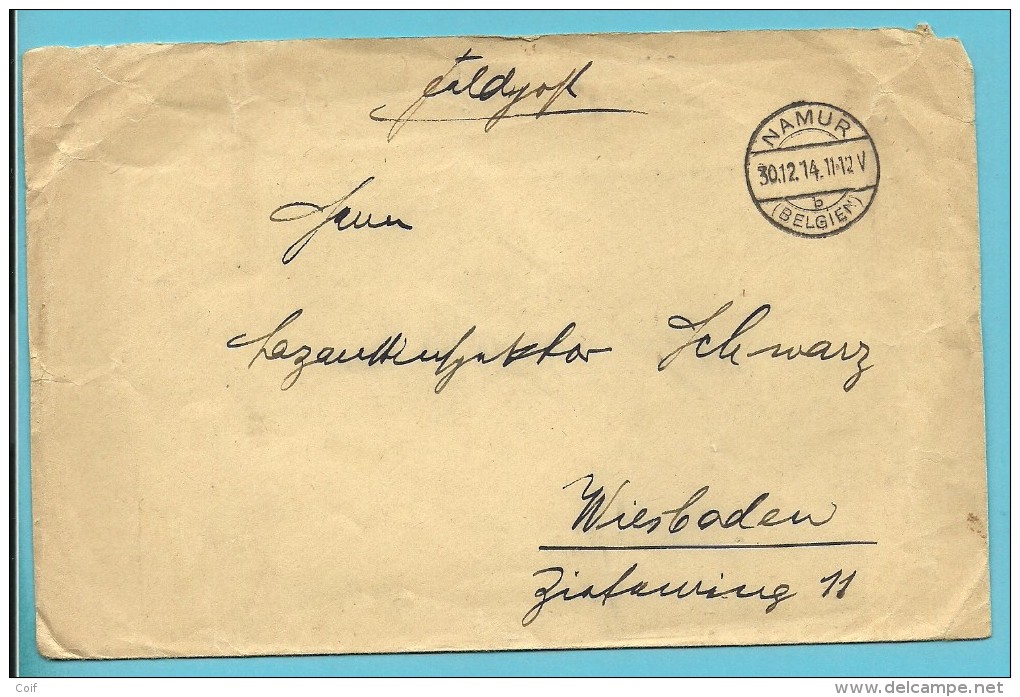 Feldpost
NAMUR
30.12.14. 11-12 V
b
(BELGIEN)
Herrn
Lazarettinspektor Schwarz
Wiesbaden
11
Coif
www.delcampe.net